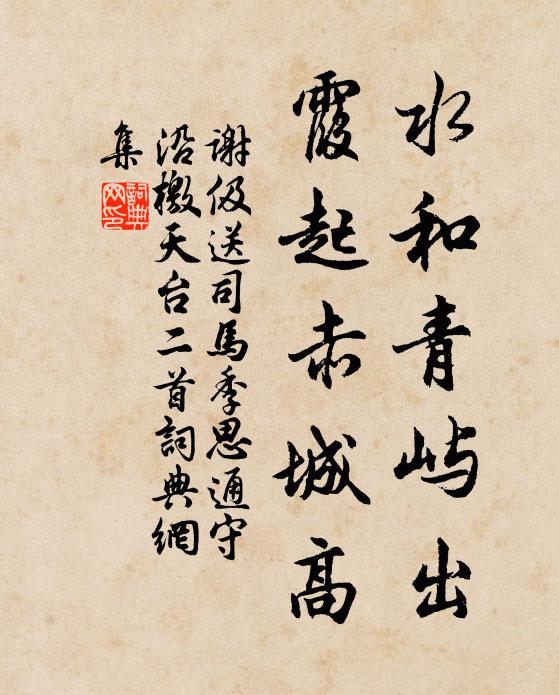 水和青屿出
霞起赤城高
谢伋送司馬季思通守
沿檄天台二首詞典網
集
詞典
网印